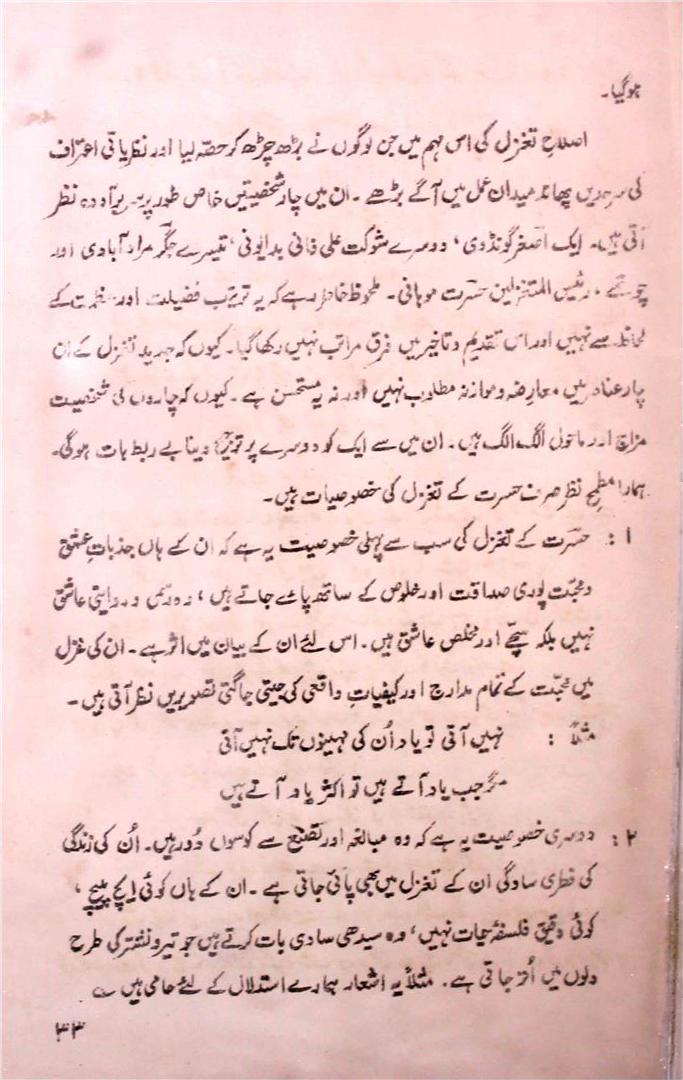 ہوگیا۔
اصلاحِ تغزل کی اس مہم میں جن لوگوں نے بڑھ چڑھ کر حصہ لیا اور نظریاتی اعتراف
کی سرحدیں پھاند میدان عمل میں آگے بڑھے۔ ان میں چار شخصیتیں خاص طور پر نظر
آتی ہیں۔ ایک اصغر گونڈوی، دوسرے شوکت علی فانی بدایونی، تیسرے جگر مراد آبادی اور
چوتھے رئیس المتغزلین حسرت موہانی۔ ملحوظ خاطر رہے کہ یہ ترتیب فضیلت اور عظمت کے
لحاظ سے نہیں اور اس تقدیم و تاخیر میں فرق مراتب نہیں رکھا گیا۔ کیوں کہ جدید تغزل کے ان
چار عناصر میں معارضہ و موازنہ مطلوب نہیں اور نہ یہ مستحسن ہے۔ کیوں کہ چاروں کی شخصیت
مزاج اور ماحول الگ الگ ہیں۔ ان میں سے ایک کو دوسرے پر ترجیح دینا بے ربط بات ہوگی۔
ہمارا مطمحِ نظر صرف حسرت کے تغزل کی خصوصیات ہیں۔
۱ : حسرت کے تغزل کی سب سے پہلی خصوصیت یہ ہے کہ ان کے ہاں جذباتِ عشق
و محبّت پوری صداقت اور خلوص کے ساتھ پائے جاتے ہیں، وہ رسمی و روایتی عاشق
نہیں بلکہ سچّے اور مخلص عاشق ہیں۔ اس لئے ان کے بیان میں اثر ہے۔ ان کی غزل
میں محبّت کے تمام مدارج اور کیفیاتِ واقعی کی جیتی جاگتی تصویریں نظر آتی ہیں۔
مثلاً : نہیں آتی تو یاد اُن کی مہینوں تک نہیں آتی
مگر جب یاد آتے ہیں تو اکثر یاد آتے ہیں
۲ : دوسری خصوصیت یہ ہے کہ وہ مبالغہ اور تصنّع سے کوسوں دُور ہیں۔ اُن کی زندگی
کی فطری سادگی ان کے تغزل میں بھی پائی جاتی ہے۔ ان کے ہاں کوئی ایچ پیچ،
کوئی دقیق فلسفۂ حیات نہیں، وہ سیدھی سادی بات کرتے ہیں جو تیر و نشتر کی طرح
دلوں میں اُتر جاتی ہے۔ مثلاً یہ اشعار ہمارے استدلال کے لئے حامی ہیں ؎
۳۳